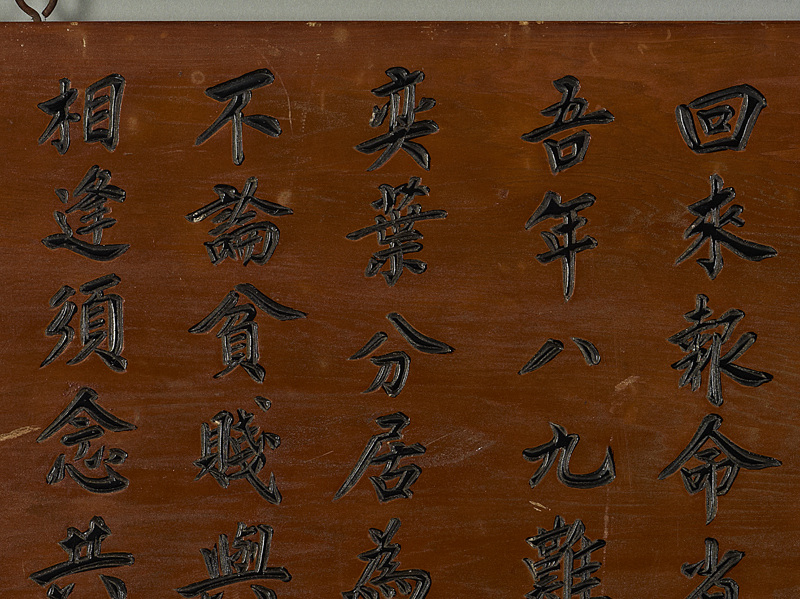 回來報命
吾年八九難
奕葉分居為
不論貧賤與
相逢須念共